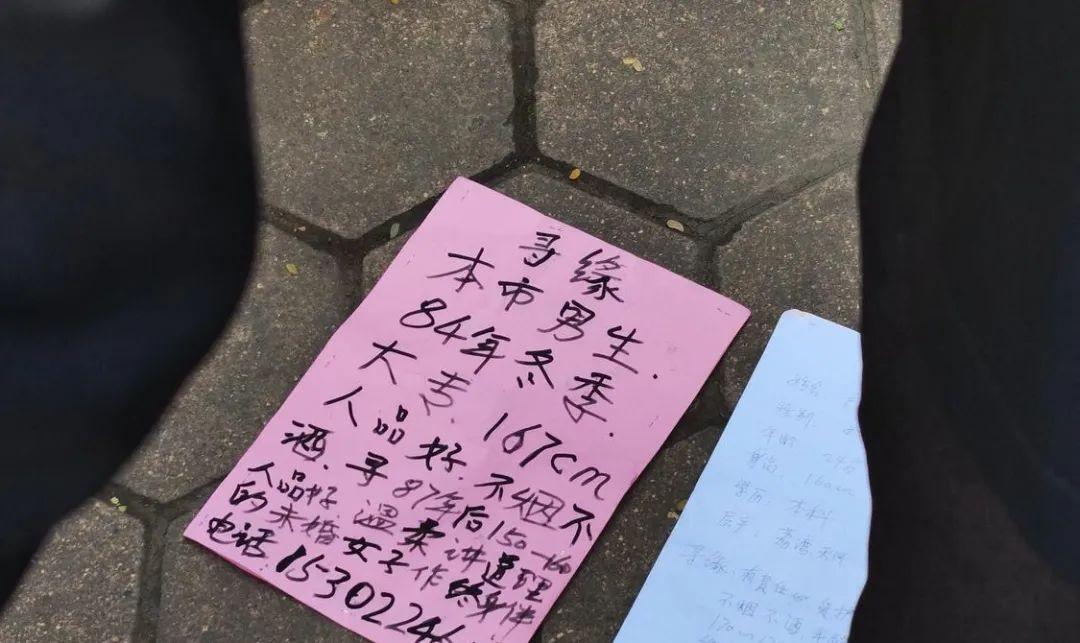 寻缘
本市男生.
84年冬季.
大专. 167cm
人品好. 不烟不
酒. 寻87年后150-160
人品好. 温柔讲道理
的未婚女子作终身伴
电话: 15302246
姓名
性别:
年龄
身高: 160cm
学历: 本科
寻缘, 有责任心
不烟不酒,
170cm